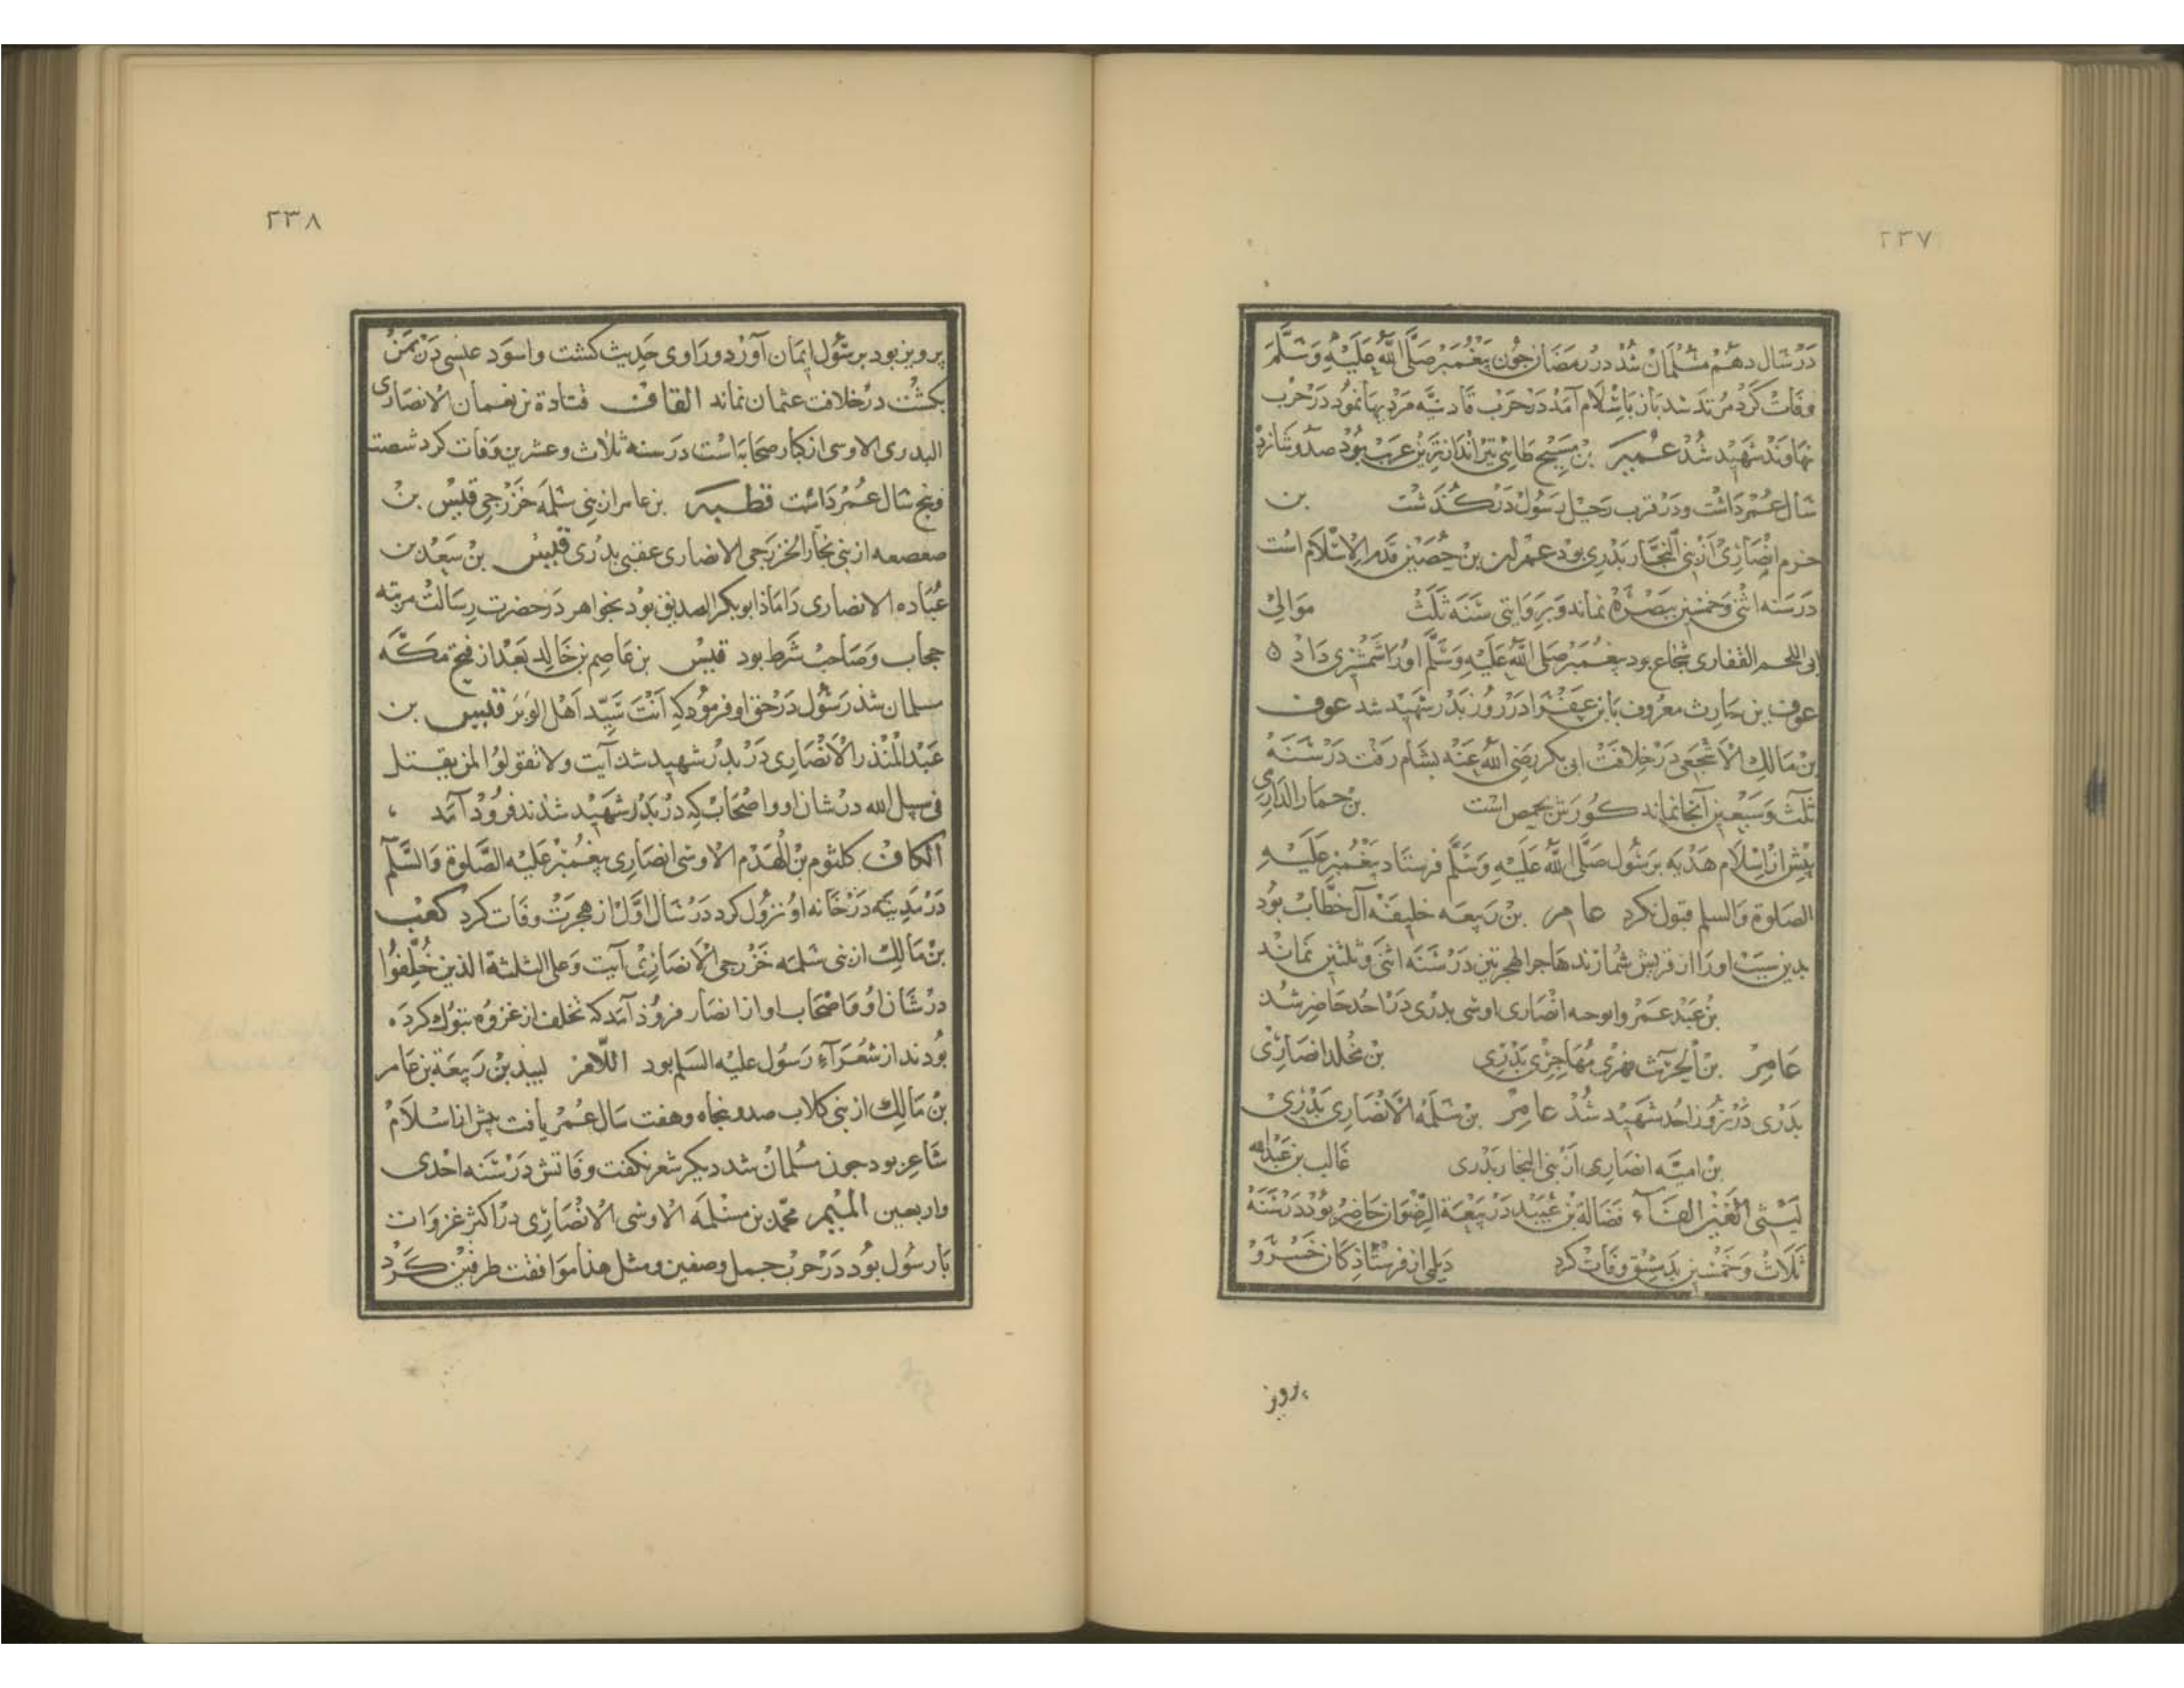 ٢٣٧
در سال دهم مسلمان شد در رمضان جون پیغمبر صلی الله علیه وسلم
وفات کرد مرتد شد باز باسلام آمد در حرب قادسیه مردیها نمود در حرب
نهاوند شهید شد عمیر بن مسیح طائی تیراندازترین عرب بود صد و شانزده
سال عمر داشت ودر قرب رحیل رسول در کذشت بن
حزم انصاری از بنی النجار بدری بود عمران بن حصین قدیم الاسلام است
در سنه اثنی وخمسین ببصره نماند وبروایتی سنه ثلث موالی
ابی اللحم الغفاری شجاع بود پیغمبر صلی الله علیه وسلم اورا شمشیری داد ه
عوف بن حارث معروف بابن عفرا در روز بدر شهید شد عوف
بن مالک الاشجعی در خلافت ابی بکر رضی الله عنه بشام رفت در سنه
ثلث وسبعین آنجا نماند کورش بحمص است بن حمار الداری
پیش از اسلام هدیه برسول صلی الله علیه وسلم فرستاد پیغمبر علیه
الصلوة والسلم قبول نکرد عامر بن ربیعه خلیفه آل خطاب بود
بدین سبب اورا از قریش شمارند هاجر الهجرتین در سنه اثنی وثلثین نماند
بن عبد عمرو ابوحبه انصاری اوسی بدری در احد حاضر شد
عامر بن الحرث فهری مهاجری بدری بن مخلد انصاری
بدری در روز احد شهید شد عامر بن سلمه الانصاری بدری
بن امیه انصاری از بنی النجار بدری غالب بن عبدالله
لیثی الغین الفاء فضالة بن عبید در بیعة الرضوان حاضر بود در سنه
ثلاث وخمسین بدمشق وفات کرد دیلمی از فرستاذکان خسرو
پرویز
٢٣٨
پرویز بود برسول ایمان آورد وراوی حدیث کشت واسود عنسی در یمن
بکشت در خلافت عثمان نماند القاف قتادة بن نعمان الانصاری
البدری الاوسی از کبار صحابه است در سنه ثلاث وعشرین وفات کرد شصت
وپنج سال عمر داشت قطبه بن عامر از بنی سلمه خزرجی قیس بن
صعصعه از بنی نجار الخزرجی الانصاری عقبی بدری قیس بن سعد بن
عباده الانصاری داماذ ابو بکر الصدیق بود بخواهر در حضرت رسالت مرتبه
حجاب وصاحب شرط بود قیس بن عاصم بن خالد بعد از فتح مکه
مسلمان شد رسول در حق او فرمود که انت سید اهل الوبر قیس بن
عبد المنذر الانصاری در بدر شهید شد آیت ولا تقولوا لمن یقتل
فی سبیل الله در شان او واصحاب که در بدر شهید شدند فروذ آمد ،
الکاف کلثوم بن الهدم الاوسی انصاری پیغمبر علیه الصلوة والسلم
در مدینه در خانه او نزول کرد در سال اول از هجرت وفات کرد کعب
بن مالک از بنی سلمه خزرجی الانصاری آیت وعلی الثلثة الذین خلفوا
در شان او واصحاب او از انصار فروذ آمد که تخلف از غزوه تبوک کرده
بودند از شعراء رسول علیه السلم بود اللام لبید بن ربیعة بن عامر
بن مالک از بنی کلاب صد وپنجاه وهفت سال عمر یافت پیش از اسلام
شاعر بود جون مسلمان شد دیکر شعر نکفت وفاتش در سنه احدی
واربعین المیم محمد بن مسلمه الاوسی الانصاری در اکثر غزوات
با رسول بود در حرب جمل وصفین ومثل هذا موافقت طرفین کرد